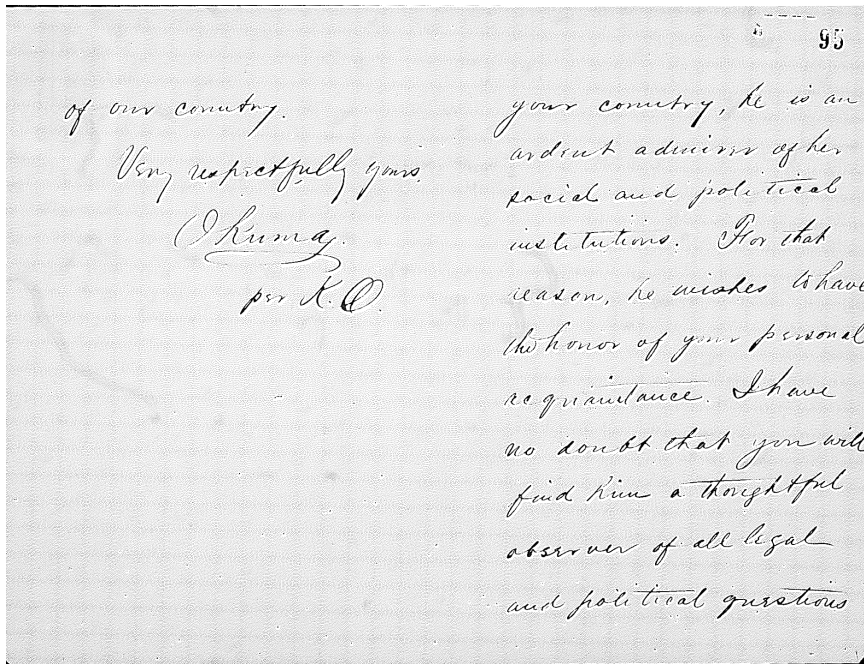 95
of our country.
Very respectfully yours
Okuma.
per K. O.
your country, he is an
ardent admirer of her
social and political
institutions. For that
reason, he wishes to have
the honor of your personal
acquaintance. I have
no doubt that you will
find him a thoughtful
observer of all legal
and political questions